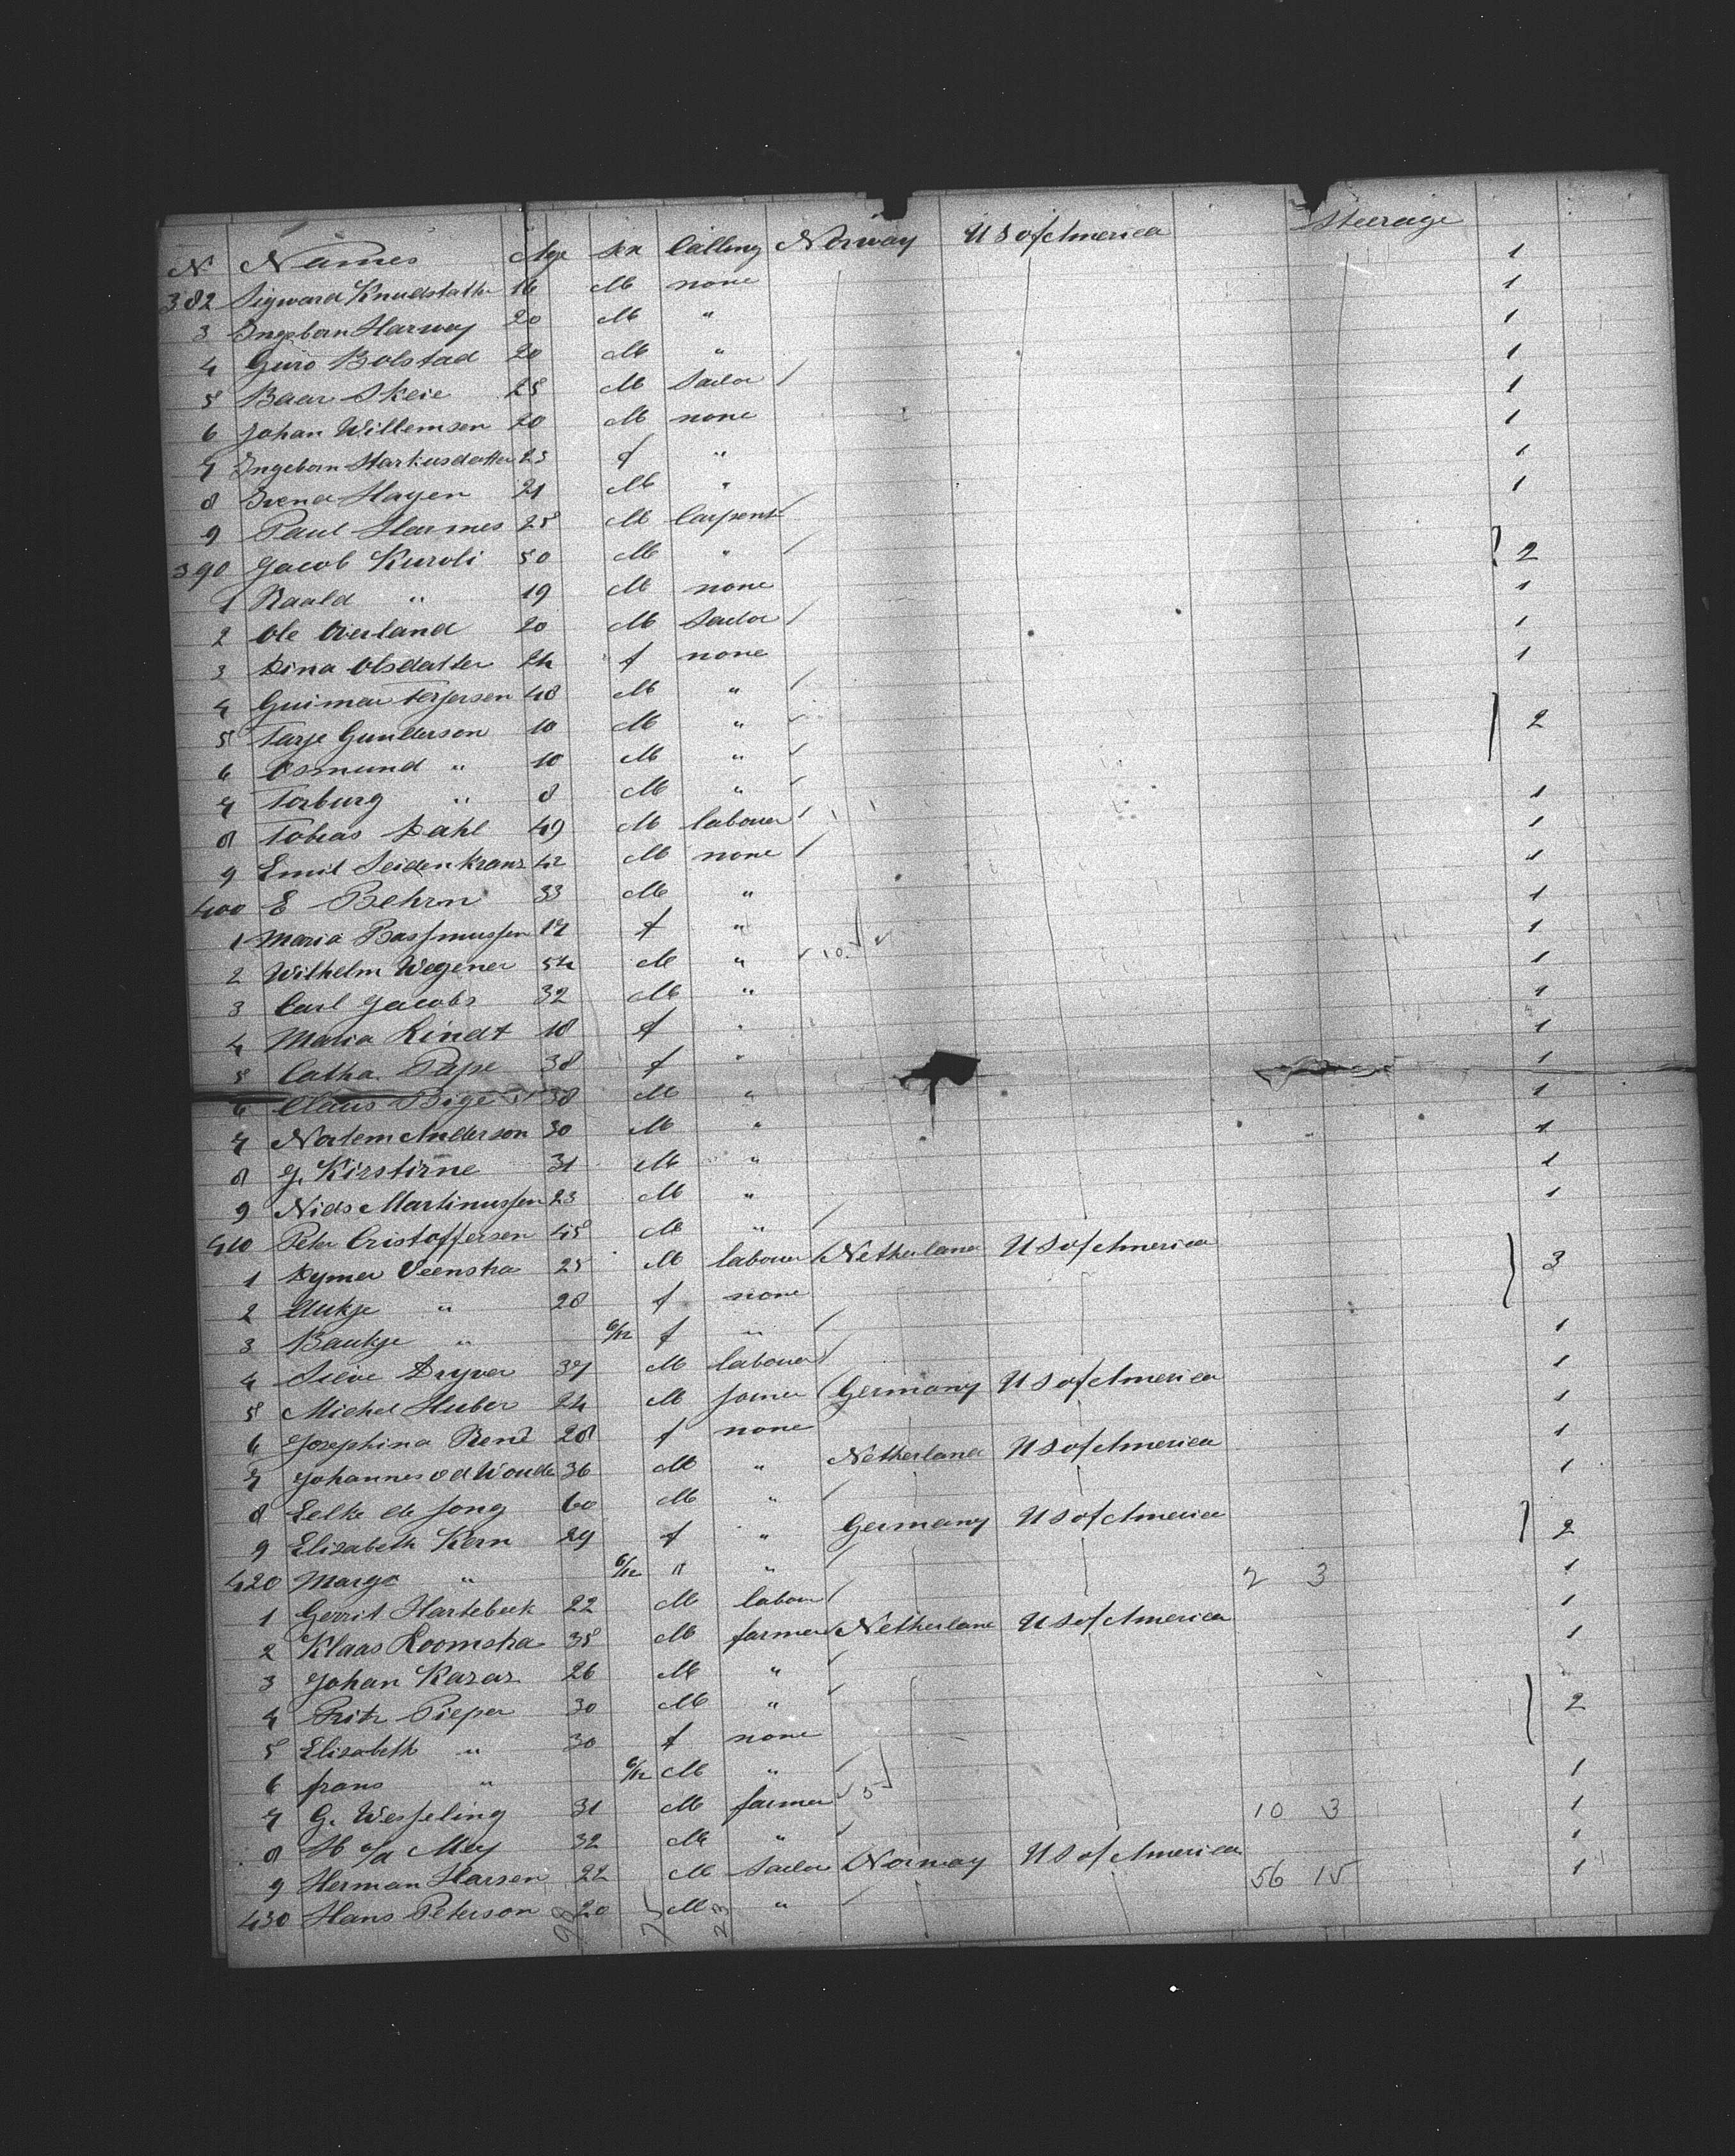 N Names Age Sex Calling Norway U S of America Steerage
382 Sigward Knudstatte 16 M none 1
3 Ingeborn Harwey 20 M " 1
4 Guro Bolstad 20 M " 1
5 Baar Skeie 25 M Sailor 1
6 Johan Willemsen 20 M none 1
7 Ingeborn Markusdatter 23 f " 1
8 Irena Hagen 21 M " 1
9 Paul Harmes 25 M Carpent 1
390 Jacob Kuroli 50 M " 2
1 Raald " 19 M none 1
2 Ole Overland 20 M Sailor 1
3 Dina Olsdatter 24 f none 1
4 Guimer Terjersen 48 M "
5 Tarje Gunderson 10 M " 2
6 Osmund " 10 M "
7 Torburg " 8 M " 1
8 Tobias Dahl 49 M labouer 1
9 Emil Seidenkranz 42 M none 1
400 E Behrn 33 M " 1
1 Maria Rassmussen 17 f " 1
2 Wilhelm Wegener 54 M " 10 1
3 Carl Jacobs 32 M " 1
4 Maria Lindt 18 f " 1
5 Catha. Pape 38 f " 1
6 Claus Bige 38 M " 1
7 Nortem Anderson 30 M " 1
8 J. Kirstirne 31 M " 1
9 Nids Martinussen 23 M " 1
410 Peter Cristoffersen 45 M "
1 Dymer Veenstra 25 M labouer Netherland U S of America 3
2 Aukje " 28 f none
3 Baukje " 6/12 f " 1
4 Sieve Dryver 37 M labouer 1
5 Michel Huber 24 M Joiner Germany U S of America 1
6 Josephina René 28 f none 1
7 Johannes v d Woude 36 M " Netherland U S of America 1
8 Eelke de Jong 60 M "
9 Elizabeth Kern 29 f " Germany U S of America 2
420 Marga " 6/12 " " 2 3 1
1 Gerrit Hartebeek 22 M labou 1
2 Klaas Roomstra 35 M farmer Netherlane U S of America 1
3 Johan Kazar 26 M "
4 Fritz Pieper 30 M " 2
5 Elizabeth " 30 f none
6 frans " 6/12 M " 1
7 G. Wesseling 31 M farmer 5 10 3 1
8 H v/d Mey 32 M " 1
9 Herman Harsen 22 M Sailor Norway U S of America 56 15 1
430 Hans Peterson 20 M "
98 75 23